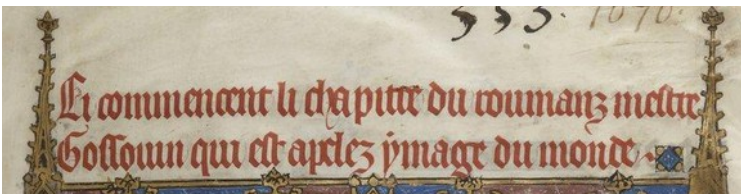 535. 1070.
Ci commencent li chapitre du roumanz mestre
Gossouin qui est apelez ymage du monde